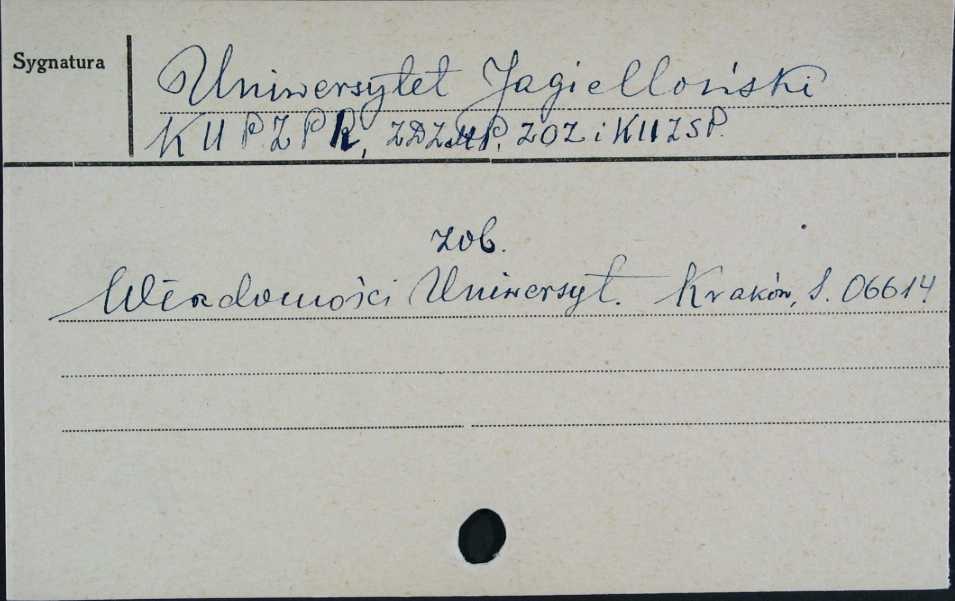 Sygnatura
Uniwersytet Jagielloński
KU PZPR, ZDZMP, ZOZ i KU ZSP.
zob.
Wiadomości Uniwersyt. Kraków, S. 06614